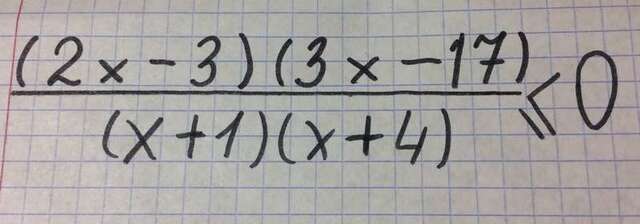 (2x-3)(3x-17)
(x+1)(x+4)
⩽0